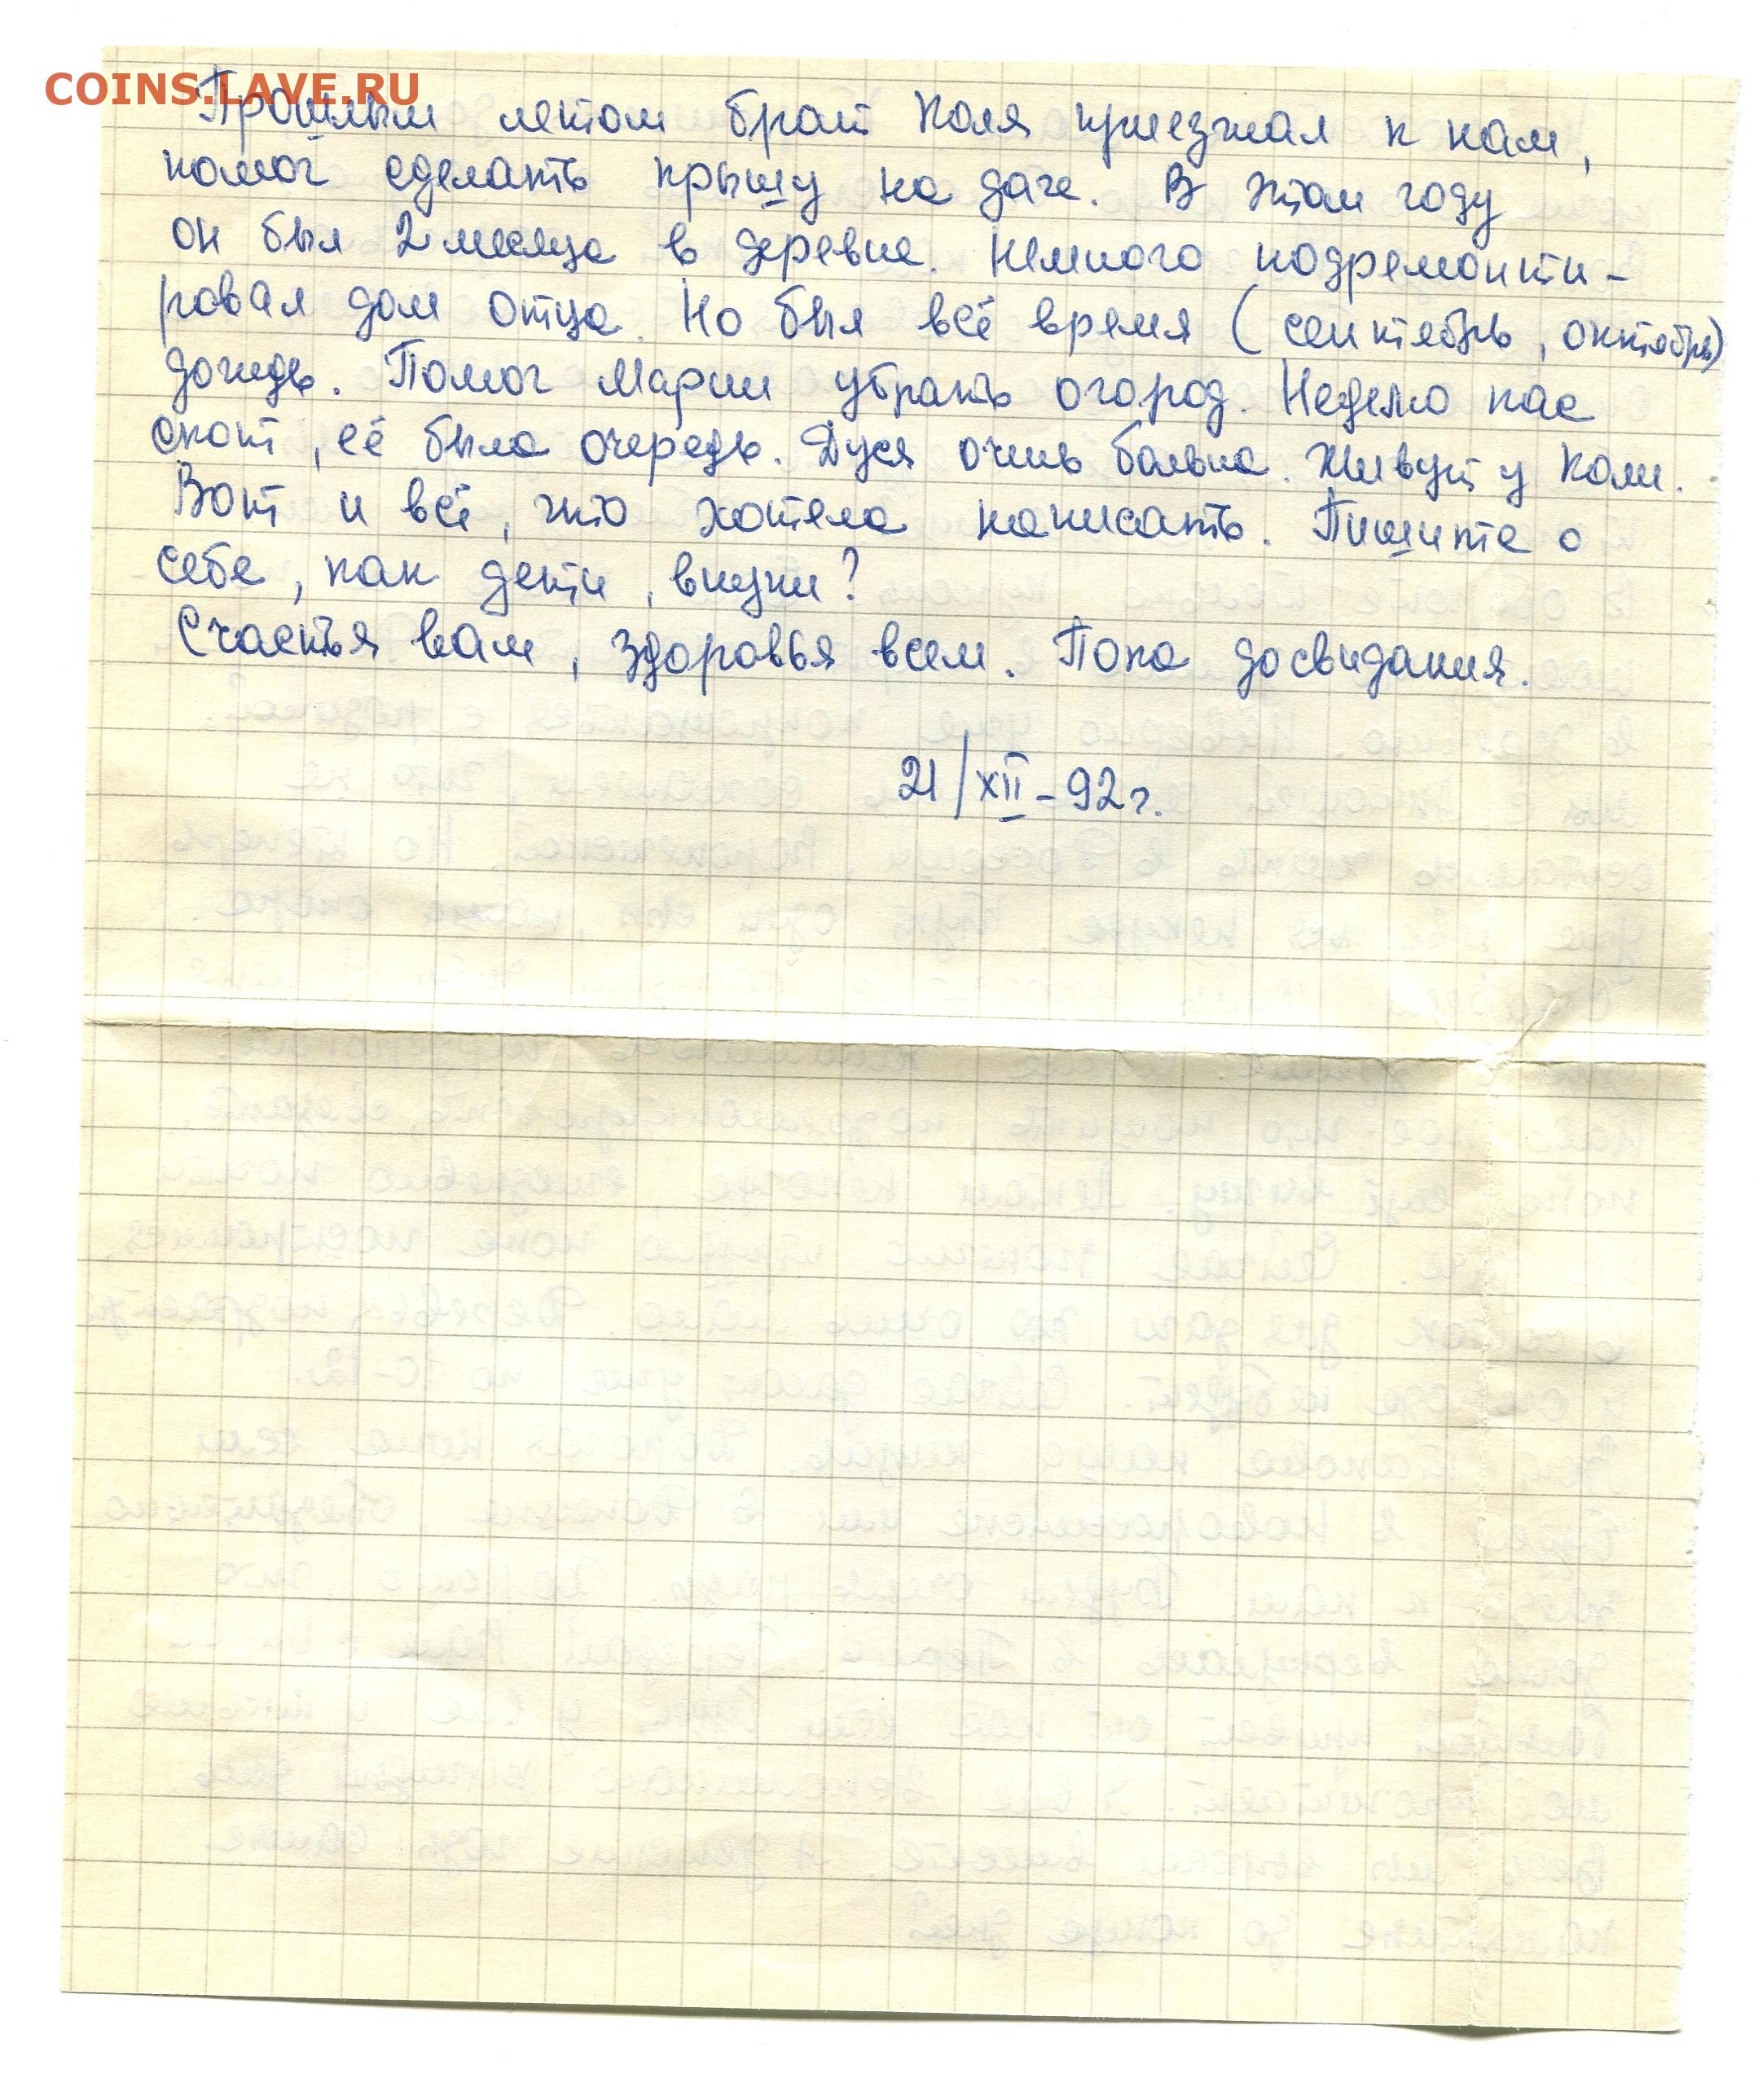 COINS.LAVE.RU
Прошлым летом брат Коля приезжал к нам,
помог сделать крышу на даче. В этом году
он был 2 месяца в деревне. Немного подремонти-
ровал дом отца. Но был всё время (сентябрь, октябрь)
дождь. Помог Марии убрать огород. Неделю пас
скот, её была очередь. Дуся очень больна. Живут у Коли.
Вот и всё, что хотела написать. Пишите о
себе, как дети, внуки?
Счастья вам, здоровья всем. Пока досвидания.
21/XII-92г.